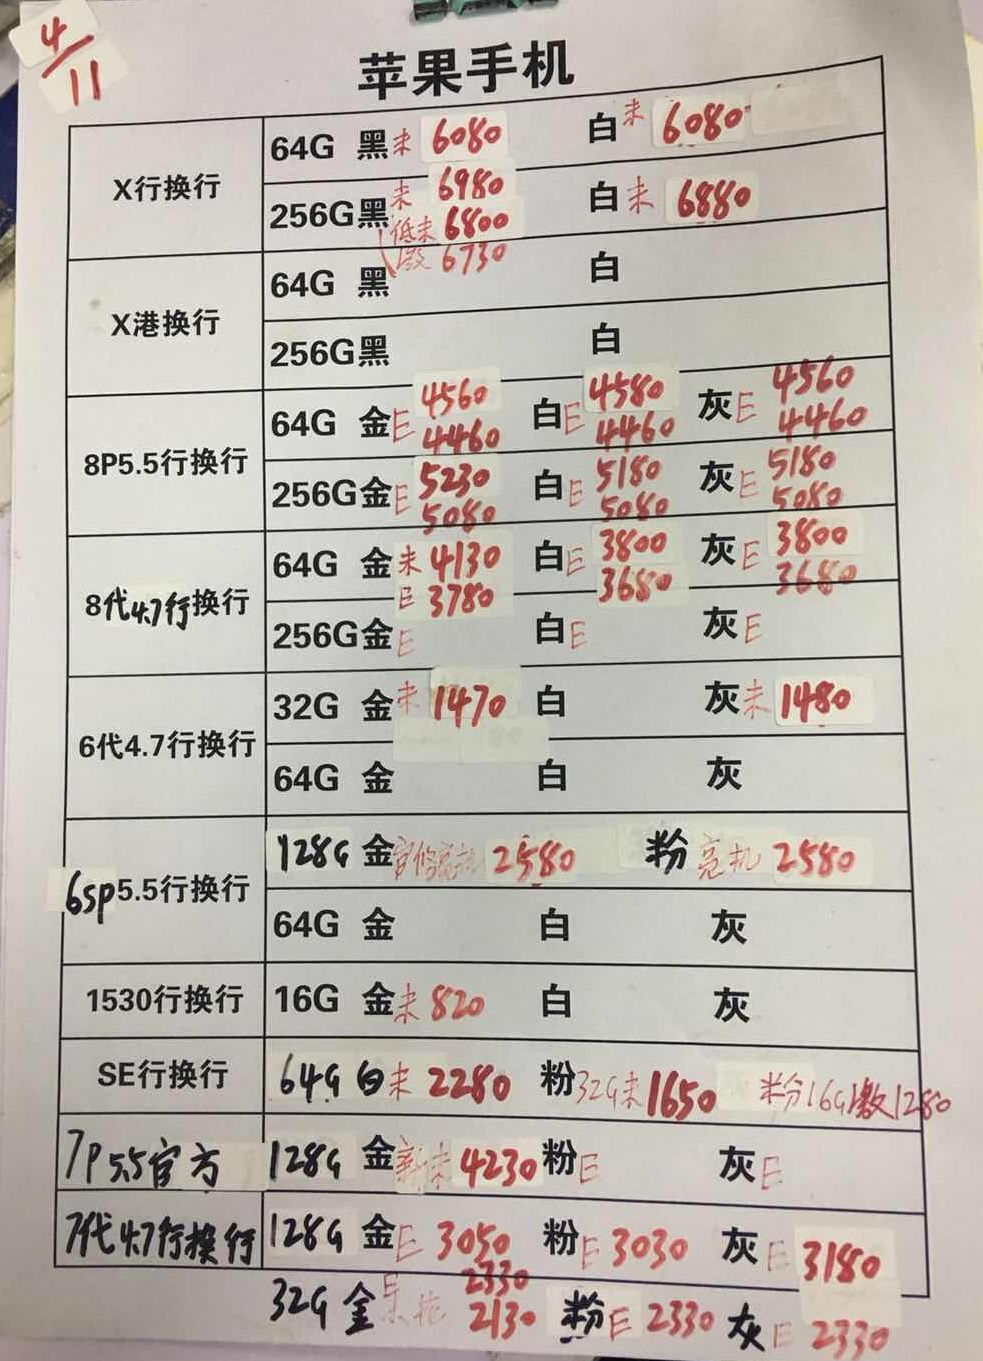 4/11
苹果手机
X行换行
64G 黑 未 6080 白 未 6080
256G 黑 未 6980 白 未 6880
低未 6800
激 6730
X港换行
64G 黑 白
256G 黑 白
8P5.5行换行
64G 金 E 4560 白 E 4580 灰 E 4560
4460 4460 4460
256G 金 E 5230 白 E 5180 灰 E 5180
5080 5080 5080
8代4.7行换行
64G 金 未 4130 白 E 3800 灰 E 3800
E 3780 3680 3680
256G 金 E 白 E 灰 E
6代4.7行换行
32G 金 未 1470 白 灰 未 1480
64G 金 白 灰
6sp5.5行换行
128G 金 官修亮机 2580 粉 亮机 2580
64G 金 白 灰
1530行换行
16G 金 未 820 白 灰
SE行换行
64G 白 未 2280 粉 32G未 1650 粉16G激1280
7P5.5官方
128G 金 新未 4230 粉 E 灰 E
7代4.7行换行
128G 金 E 3050 粉 E 3030 灰 E 3180
2330
32G 金 2130 粉 E 2330 灰 E 2330